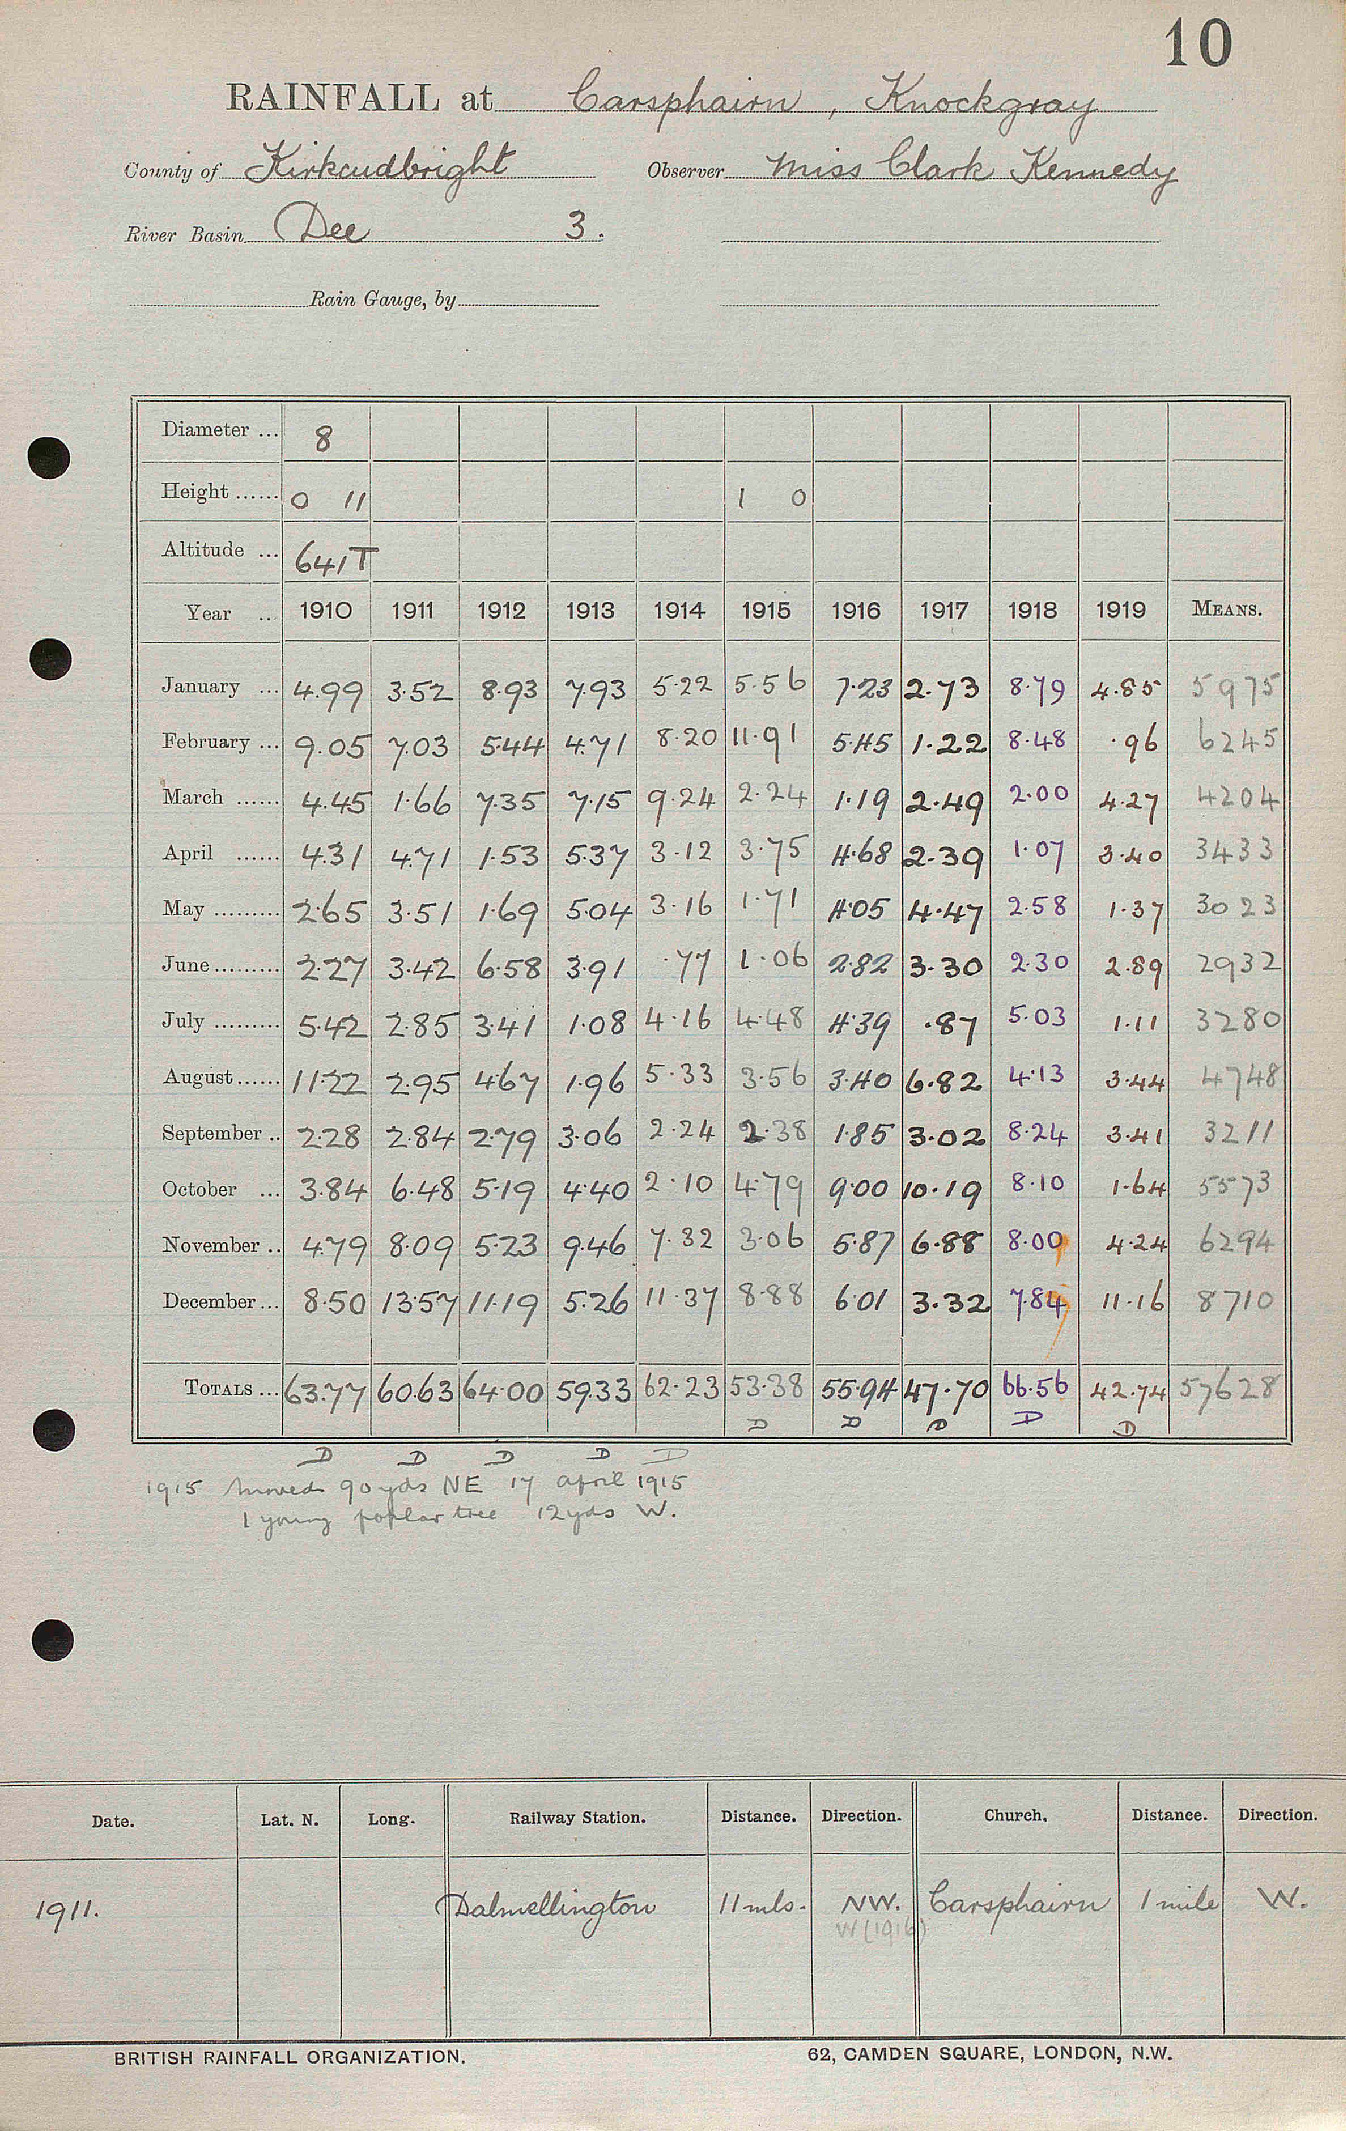 10
RAINFALL at Carsphairn, Knockgray
County of Kirkcudbright Observer Miss Clark Kennedy
River Basin Dee 3.
Rain Gauge, by
Diameter ... 8
Height ...... 0 11 1 0
Altitude ... 641T
Year ... 1910 1911 1912 1913 1914 1915 1916 1917 1918 1919 MEANS.
January ... 4.99 3.52 8.93 7.93 5.22 5.56 7.23 2.73 8.79 4.85 5975
February ... 9.05 7.03 5.44 4.71 8.20 11.91 5.45 1.22 8.48 .96 6245
March ...... 4.45 1.66 7.35 7.15 9.24 2.24 1.19 2.49 2.00 4.27 4204
April ...... 4.31 4.71 1.53 5.37 3.12 3.75 4.68 2.39 1.07 3.40 3433
May ......... 2.65 3.51 1.69 5.04 3.16 1.71 4.05 4.47 2.58 1.37 3023
June ......... 2.27 3.42 6.58 3.91 .77 1.06 2.82 3.30 2.30 2.89 2932
July ......... 5.42 2.85 3.41 1.08 4.16 4.48 4.39 .87 5.03 1.11 3280
August ...... 11.22 2.95 4.67 1.96 5.33 3.56 3.40 6.82 4.13 3.44 4748
September .. 2.28 2.84 2.79 3.06 2.24 2.38 1.85 3.02 8.24 3.41 3211
October ... 3.84 6.48 5.19 4.40 2.10 4.79 9.00 10.19 8.10 1.64 5573
November .. 4.79 8.09 5.23 9.46 7.32 3.06 5.87 6.88 8.00 4.24 6294
December ... 8.50 13.57 11.19 5.26 11.37 8.88 6.01 3.32 7.84 11.16 8710
TOTALS ... 63.77 60.63 64.00 59.33 62.23 53.38 55.94 47.70 66.56 42.74 57628
D D D D D
D D D D D
1915 Moved 90 yds NE 17 April 1915
1 young poplar tree 12 yds W.
Date. Lat. N. Long. Railway Station. Distance. Direction. Church. Distance. Direction.
1911. Dalmellington 11 mls. NW. Carsphairn 1 mile W.
W (1916)
BRITISH RAINFALL ORGANIZATION. 62, CAMDEN SQUARE, LONDON, N.W.